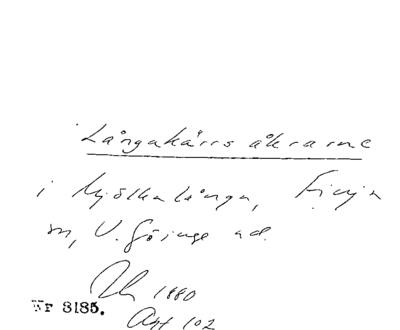 Långakärrs åkrarne
i Mjölkalånga, Finja
sn, V. Göinge hd.
1880
Nr 8185.
Akt 102